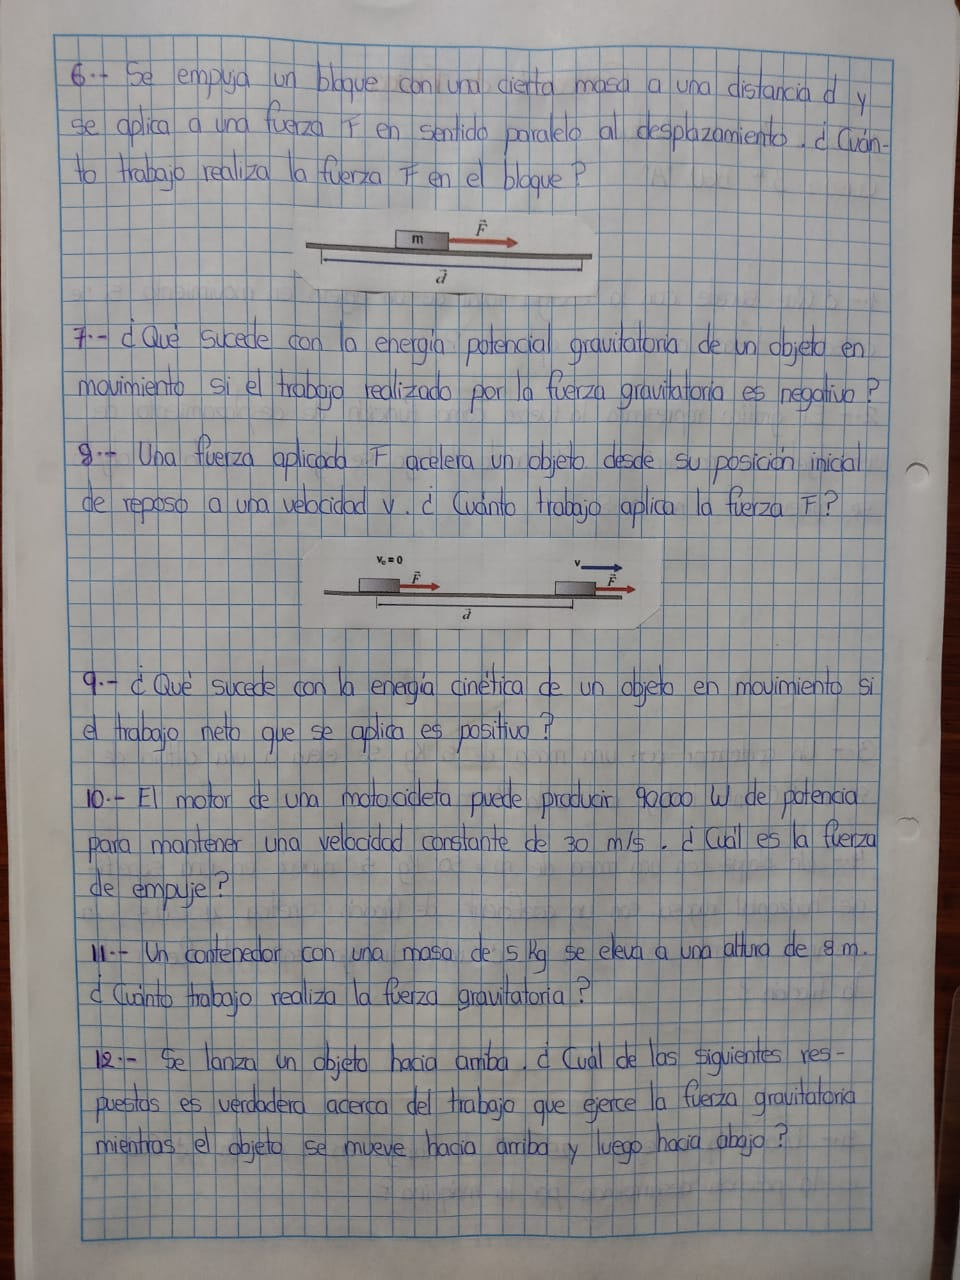 6.- Se empuja un bloque con una cierta masa a una distancia d y
se aplica a una fuerza F en sentido paralelo al desplazamiento. ¿Cuán-
to trabajo realiza la fuerza F en el bloque?
m F
d
7.- ¿Qué sucede con la energía potencial gravitatoria de un objeto en
movimiento si el trabajo realizado por la fuerza gravitatoria es negativo?
8.- Una fuerza aplicada F acelera un objeto desde su posición inicial
de reposo a una velocidad v. ¿Cuánto trabajo aplica la fuerza F?
v₀ = 0 v
F F
d
9.- ¿Qué sucede con la energía cinética de un objeto en movimiento si
el trabajo neto que se aplica es positivo?
10.- El motor de una motocicleta puede producir 90000 W de potencia
para mantener una velocidad constante de 30 m/s. ¿Cuál es la fuerza
de empuje?
11.- Un contenedor con una masa de 5 Kg se eleva a una altura de 8 m.
¿Cuánto trabajo realiza la fuerza gravitatoria?
12.- Se lanza un objeto hacia arriba. ¿Cuál de las siguientes res-
puestas es verdadera acerca del trabajo que ejerce la fuerza gravitatoria
mientras el objeto se mueve hacia arriba y luego hacia abajo?